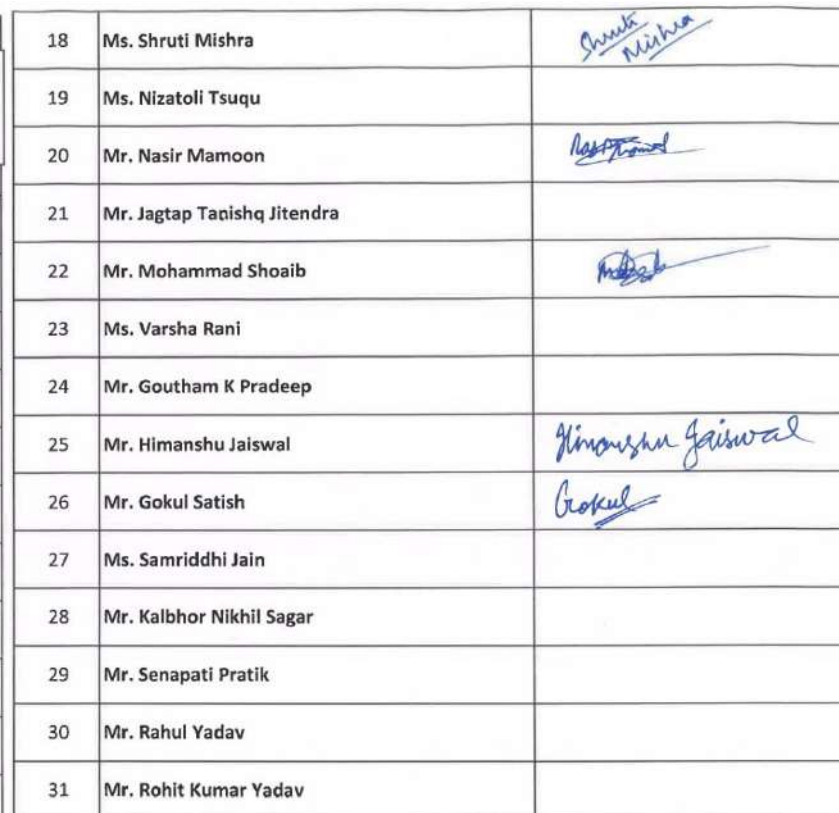 18 Ms. Shruti Mishra Shruti Mishra
19 Ms. Nizatoli Tsuqu
20 Mr. Nasir Mamoon
21 Mr. Jagtap Tanishq Jitendra
22 Mr. Mohammad Shoaib
23 Ms. Varsha Rani
24 Mr. Goutham K Pradeep
25 Mr. Himanshu Jaiswal Himanshu Jaiswal
26 Mr. Gokul Satish Gokul
27 Ms. Samriddhi Jain
28 Mr. Kalbhor Nikhil Sagar
29 Mr. Senapati Pratik
30 Mr. Rahul Yadav
31 Mr. Rohit Kumar Yadav